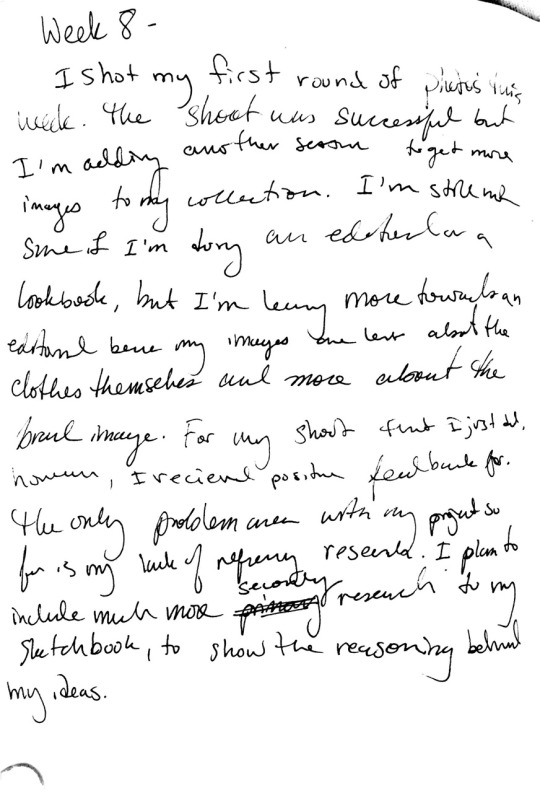 Week 8 -
I shot my first round of photos this
week. The shoot was successful but
I'm adding another season to get more
images to my collection. I'm still not
sure if I'm doing an editorial or a
lookbook, but I'm leaning more towards an
editorial because my images are less about the
clothes themselves and more about the
brand image. For my shoot that I just did,
however, I recieved positive feedback for.
The only problem area with my project so
far is my lack of research. I plan to
include much more secondary research to my
sketchbook, to show the reasoning behind
my ideas.